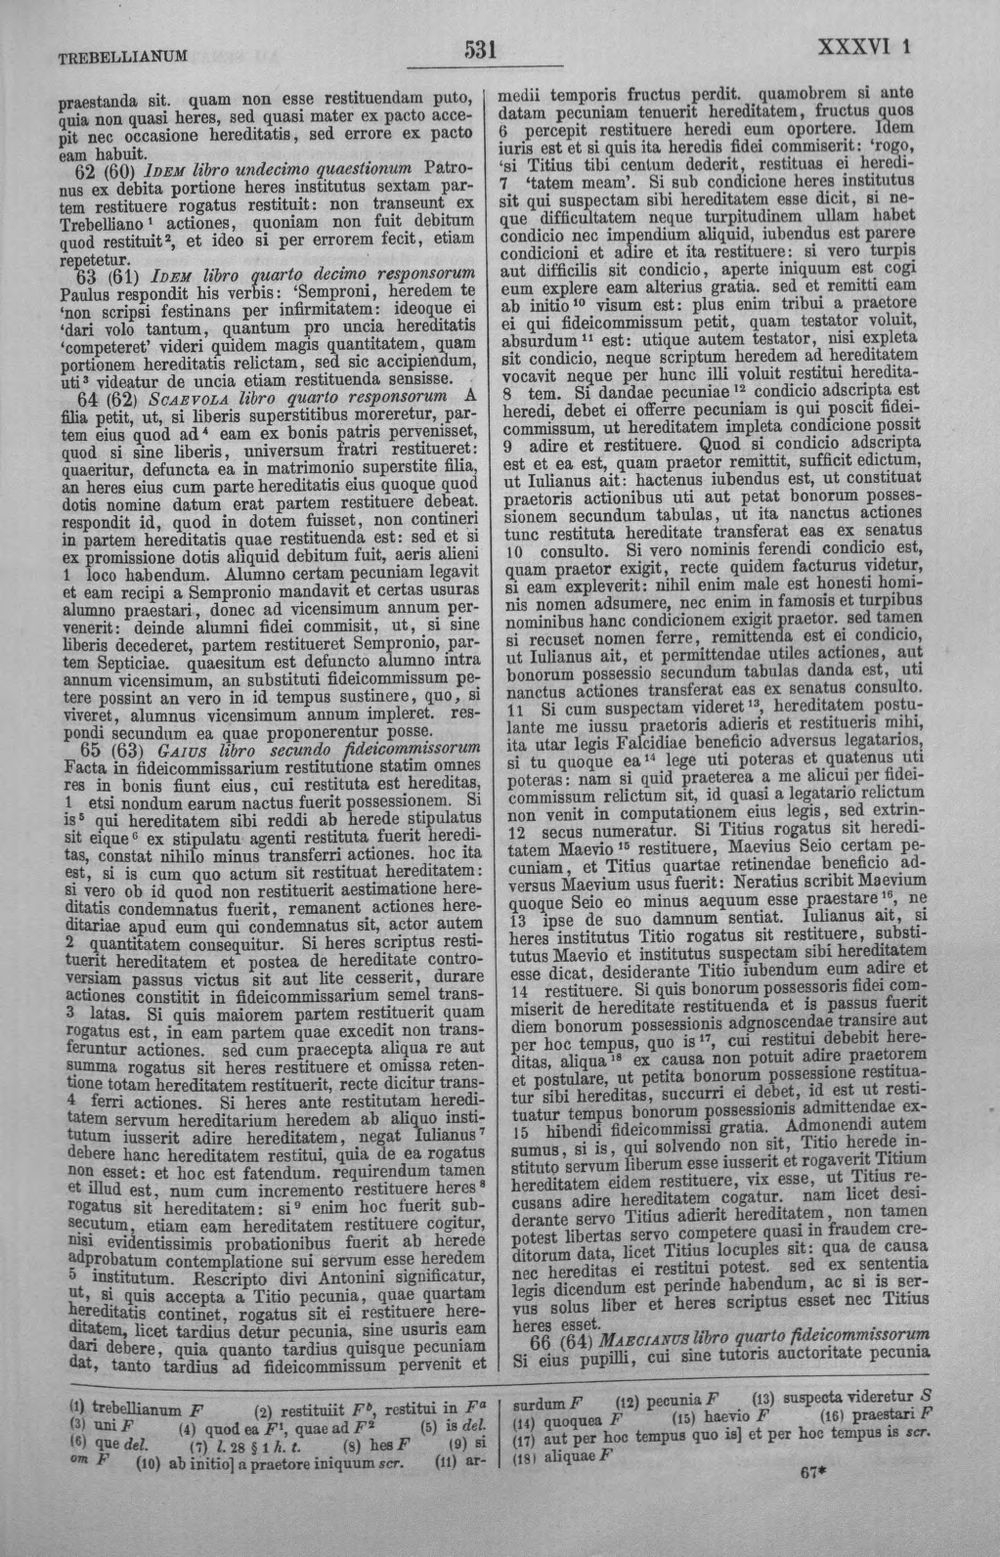 TREBELLIANUM
531
XXXVI 1
praestanda sit. quam non esse restituendam puto,
quia non quasi heres, sed quasi mater ex pacto acce-
pit nec occasione hereditatis, sed errore ex pacto
eam habuit.
62 (60) IDEM libro undecimo quaestionum Patro-
nus ex debita portione heres institutus sextam par-
tem restituere rogatus restituit: non transeunt ex
Trebelliano¹ actiones, quoniam non fuit debitum
quod restituit², et ideo si per errorem fecit, etiam
repetetur.
63 (61) IDEM libro quarto decimo responsorum
Paulus respondit his verbis: ‘Semproni, heredem te
‘non scripsi festinans per infirmitatem: ideoque ei
‘dari volo tantum, quantum pro uncia hereditatis
‘competeret’ videri quidem magis quantitatem, quam
portionem hereditatis relictam, sed sic accipiendum,
uti³ videatur de uncia etiam restituenda sensisse.
64 (62) SCAEVOLA libro quarto responsorum A
filia petit, ut, si liberis superstitibus moreretur, par-
tem eius quod ad⁴ eam ex bonis patris pervenisset,
quod si sine liberis, universum fratri restitueret:
quaeritur, defuncta ea in matrimonio superstite filia,
an heres eius cum parte hereditatis eius quoque quod
dotis nomine datum erat partem restituere debeat.
respondit id, quod in dotem fuisset, non contineri
in partem hereditatis quae restituenda est: sed et si
ex promissione dotis aliquid debitum fuit, aeris alieni
1 loco habendum. Alumno certam pecuniam legavit
et eam recipi a Sempronio mandavit et certas usuras
alumno praestari, donec ad vicensimum annum per-
venerit: deinde alumni fidei commisit, ut, si sine
liberis decederet, partem restitueret Sempronio, par-
tem Septiciae. quaesitum est defuncto alumno intra
annum vicensimum, an substituti fideicommissum pe-
tere possint an vero in id tempus sustinere, quo, si
viveret, alumnus vicensimum annum impleret. res-
pondi secundum ea quae proponerentur posse.
65 (63) GAIUS libro secundo fideicommissorum
Facta in fideicommissarium restitutione statim omnes
res in bonis fiunt eius, cui restituta est hereditas,
1 etsi nondum earum nactus fuerit possessionem. Si
is⁵ qui hereditatem sibi reddi ab herede stipulatus
sit eique⁶ ex stipulatu agenti restituta fuerit heredi-
tas, constat nihilo minus transferri actiones. hoc ita
est, si is cum quo actum sit restituat hereditatem:
si vero ob id quod non restituerit aestimatione here-
ditatis condemnatus fuerit, remanent actiones here-
ditariae apud eum qui condemnatus sit, actor autem
2 quantitatem consequitur. Si heres scriptus resti-
tuerit hereditatem et postea de hereditate contro-
versiam passus victus sit aut lite cesserit, durare
actiones constitit in fideicommissarium semel trans-
3 latas. Si quis maiorem partem restituerit quam
rogatus est, in eam partem quae excedit non trans-
feruntur actiones. sed cum praecepta aliqua re aut
summa rogatus sit heres restituere et omissa reten-
tione totam hereditatem restituerit, recte dicitur trans-
4 ferri actiones. Si heres ante restitutam heredi-
tatem servum hereditarium heredem ab aliquo insti-
tutum iusserit adire hereditatem, negat Iulianus⁷
debere hanc hereditatem restitui, quia de ea rogatus
non esset: et hoc est fatendum. requirendum tamen
et illud est, num cum incremento restituere heres⁸
rogatus sit hereditatem: si⁹ enim hoc fuerit sub-
secutum, etiam eam hereditatem restituere cogitur,
nisi evidentissimis probationibus fuerit ab herede
adprobatum contemplatione sui servum esse heredem
5 institutum. Rescripto divi Antonini significatur,
ut, si quis accepta a Titio pecunia, quae quartam
hereditatis continet, rogatus sit ei restituere here-
ditatem, licet tardius detur pecunia, sine usuris eam
dari debere, quia quanto tardius quisque pecuniam
dat, tanto tardius ad fideicommissum pervenit et
medii temporis fructus perdit. quamobrem si ante
datam pecuniam tenuerit hereditatem, fructus quos
6 percepit restituere heredi eum oportere. Idem
iuris est et si quis ita heredis fidei commiserit: ‘rogo,
‘si Titius tibi centum dederit, restituas ei heredi-
7 ‘tatem meam’. Si sub condicione heres institutus
sit qui suspectam sibi hereditatem esse dicit, si ne-
que difficultatem neque turpitudinem ullam habet
condicio nec impendium aliquid, iubendus est parere
condicioni et adire et ita restituere: si vero turpis
aut difficilis sit condicio, aperte iniquum est cogi
eum explere eam alterius gratia. sed et remitti eam
ab initio¹⁰ visum est: plus enim tribui a praetore
ei qui fideicommissum petit, quam testator voluit,
absurdum¹¹ est: utique autem testator, nisi expleta
sit condicio, neque scriptum heredem ad hereditatem
vocavit neque per hunc illi voluit restitui heredita-
8 tem. Si dandae pecuniae¹² condicio adscripta est
heredi, debet ei offerre pecuniam is qui poscit fidei-
commissum, ut hereditatem impleta condicione possit
9 adire et restituere. Quod si condicio adscripta
est et ea est, quam praetor remittit, sufficit edictum,
ut Iulianus ait: hactenus iubendus est, ut constituat
praetoris actionibus uti aut petat bonorum posses-
sionem secundum tabulas, ut ita nanctus actiones
tunc restituta hereditate transferat eas ex senatus
10 consulto. Si vero nominis ferendi condicio est,
quam praetor exigit, recte quidem facturus videtur,
si eam expleverit: nihil enim male est honesti homi-
nis nomen adsumere, nec enim in famosis et turpibus
nominibus hanc condicionem exigit praetor. sed tamen
si recuset nomen ferre, remittenda est ei condicio,
ut Iulianus ait, et permittendae utiles actiones, aut
bonorum possessio secundum tabulas danda est, uti
nanctus actiones transferat eas ex senatus consulto.
11 Si cum suspectam videret¹³, hereditatem postu-
lante me iussu praetoris adieris et restitueris mihi,
ita utar legis Falcidiae beneficio adversus legatarios,
si tu quoque ea¹⁴ lege uti poteras et quatenus uti
poteras: nam si quid praeterea a me alicui per fidei-
commissum relictum sit, id quasi a legatario relictum
non venit in computationem eius legis, sed extrin-
12 secus numeratur. Si Titius rogatus sit heredi-
tatem Maevio¹⁵ restituere, Maevius Seio certam pe-
cuniam, et Titius quartae retinendae beneficio ad-
versus Maevium usus fuerit: Neratius scribit Maevium
quoque Seio eo minus aequum esse praestare¹⁶, ne
13 ipse de suo damnum sentiat. Iulianus ait, si
heres institutus Titio rogatus sit restituere, substi-
tutus Maevio et institutus suspectam sibi hereditatem
esse dicat, desiderante Titio iubendum eum adire et
14 restituere. Si quis bonorum possessoris fidei com-
miserit de hereditate restituenda et is passus fuerit
diem bonorum possessionis adgnoscendae transire aut
per hoc tempus, quo is¹⁷, cui restitui debebit here-
ditas, aliqua¹⁸ ex causa non potuit adire praetorem
et postulare, ut petita bonorum possessione restitua-
tur sibi hereditas, succurri ei debet, id est ut resti-
tuatur tempus bonorum possessionis admittendae ex-
15 hibendi fideicommissi gratia. Admonendi autem
sumus, si is, qui solvendo non sit, Titio herede in-
stituto servum liberum esse iusserit et rogaverit Titium
hereditatem eidem restituere, vix esse, ut Titius re-
cusans adire hereditatem cogatur. nam licet desi-
derante servo Titius adierit hereditatem, non tamen
potest libertas servo competere quasi in fraudem cre-
ditorum data, licet Titius locuples sit: qua de causa
nec hereditas ei restitui potest. sed ex sententia
legis dicendum est perinde habendum, ac si is ser-
vus solus liber et heres scriptus esset nec Titius
heres esset.
66 (64) MAECIANUS libro quarto fideicommissorum
Si eius pupilli, cui sine tutoris auctoritate pecunia
(1) trebellianum F (2) restituiit Fᵇ, restitui in Fᵃ
(3) uni F (4) quod ea F¹, quae ad F² (5) is del.
(6) que del. (7) l. 28 § 1 h. t. (8) hes F (9) si
om F (10) ab initio] a praetore iniquum scr. (11) ar-
surdum F (12) pecunia F (13) suspecta videretur S
(14) quoquea F (15) haevio F (16) praestari F
(17) aut per hoc tempus quo is] et per hoc tempus is scr.
(18) aliquae F
67*